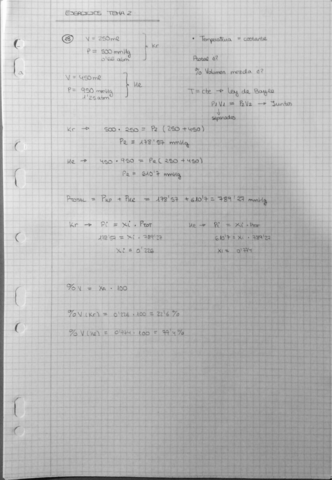 EJERCICIOS TEMA 2
V = 250 ml
P = 500 mmHg
Kr
• Temperatura = constante
Ptotal x?
% Volumen mezcla x?
V = 450 ml
P = 950 mmHg
1'25 atm
Xe
T = cte → Ley de Boyle
P1V1 = P2V2 → Juntos
separados
Kr → 500 · 250 = P2 (250 + 450)
P2 = 178'57 mmHg
Xe → 950 · 450 = P2 (250 + 450)
P2 = 610'7 mmHg
Ptotal = PKr + PXe = 178'57 + 610'7 = 789'27 mmHg
Kr → Pi = xi · Ptot
Xe → Pi = xi · Ptot
178'57 = xi · 789'27
610'7 = xi · 789'27
xi = 0'226
xi = 0'774
% V = xi · 100
% V (Kr) = 0'226 · 100 = 22'6 %
% V (Xe) = 0'774 · 100 = 77'4 %